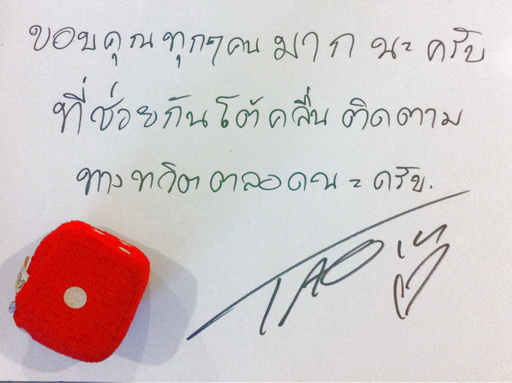 ขอบคุณทุกๆคนมากนะครับ
ที่ช่วยกันโต้คลื่นติดตาม
ทางทวิตตลอดนะครับ.
TAO